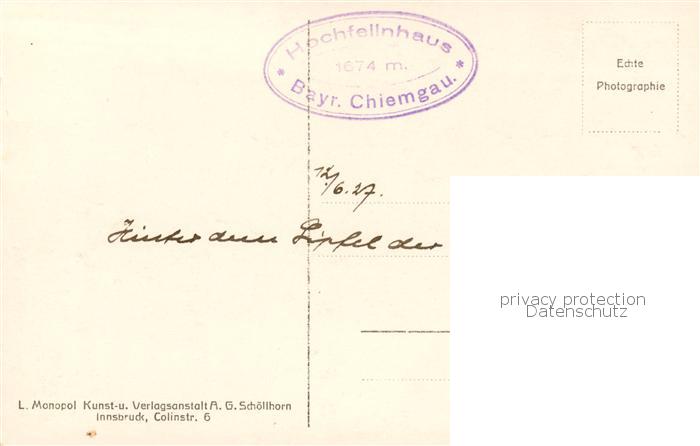 Hochfellnhaus
1674 m.
* Bayr. Chiemgau. *
Echte
Photographie
12/6.27.
Hinter dem Gipfel der
privacy protection
Datenschutz
L. Monopol Kunst-u. Verlagsanstalt A. G. Schöllhorn
Innsbruck, Colinstr. 6